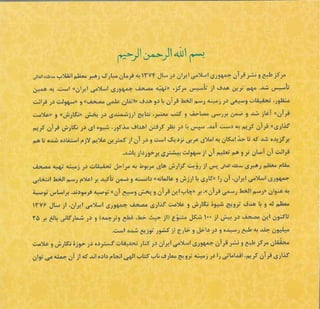 بسم الله الرحمن الرحیم
مرکز طبع و نشر قرآن جمهوری اسلامی ایران در سال ۱۳۷۴ به فرمان مبارک رهبر معظم انقلاب
تأسیس شد. مهم ترین هدف از تأسیس مرکز، «تهیّه مصحف جمهوری اسلامی ایران» است. به همین
منظور، تحقیقات وسیعی در زمینه رسم الخط قرآن با دو هدف «اتقان علمی مصحف» و «سهولت در قرائت
قرآن» آغاز شد و ضمن بررسی مصاحف و کتب معتبر، نتایج ارزشمندی در بخش «نگارش» و «علامت
گذاری» قرآن کریم به دست آمد. سپس با در نظر گرفتن اهداف مذکور، شیوه ای در نگارش قرآن کریم
برگزیده شد که تا حدّ امکان به املای عربی نزدیک است و در آن از کمترین علایم لازم استفاده شده تا هم
قرائت آن آسان تر و هم تعلیم آن از سهولت بیشتری برخوردار باشد.
مقام معظم رهبری پس از رؤیت گزارش های مربوط به مراحل تحقیقات در زمینه تهیه مصحف
جمهوری اسلامی ایران، آن را «کاری با ارزش و عالمانه» دانسته و ضمن تأکید بر اعلام رسم الخط انتخابی
به عنوان «رسم الخط رسمی قرآن»، بر «چاپ این قرآن و پخش وسیع آن» توصیه فرمودند. براساس توصیهٔ
معظم له و با هدف ترویج شیوهٔ نگارش و علامت گذاری مصحف جمهوری اسلامی ایران، از سال ۱۳۷۶
تاکنون این مصحف در بیش از ۱۰۰ شکل متنوّع (از حیث خط، قطع وترجمه) و در شمارگانی بالغ بر ۲۵
میلیون جلد به طبع رسیده و در داخل و خارج از کشور توزیع شده است.
محقّقان مرکز طبع و نشر قرآن جمهوری اسلامی ایران در کنار تحقیقات گسترده در حوزهٔ نگارش و علامت
گذاری قرآن کریم، اقداماتی را در زمینه ترویج معارف ناب کتاب الهی انجام داده اند که از آن جمله می توان